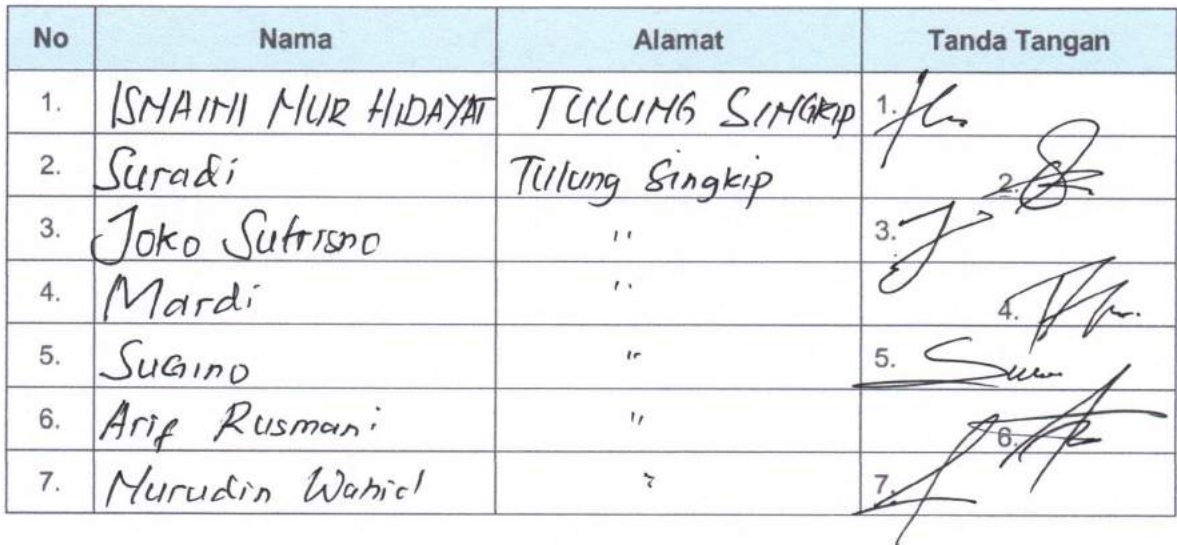 No Nama Alamat Tanda Tangan
1. ISNAINI NUR HIDAYAT TULUNG SINGKIP 1.
2. Suradi Tulung Singkip 2.
3. Joko Sutrisno " 3.
4. Mardi " 4.
5. SUGINO " 5.
6. Arif Rusmani " 6.
7. Nurudin Wahid " 7.